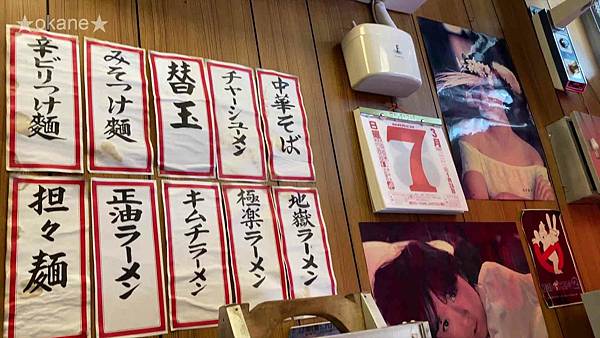 ★okane★
中華そば
チャーシューメン
替玉
みそつけ麺
辛ビリつけ麺
地獄ラーメン
極楽ラーメン
キムチラーメン
正油ラーメン
担々麺
3月
7
日曜日